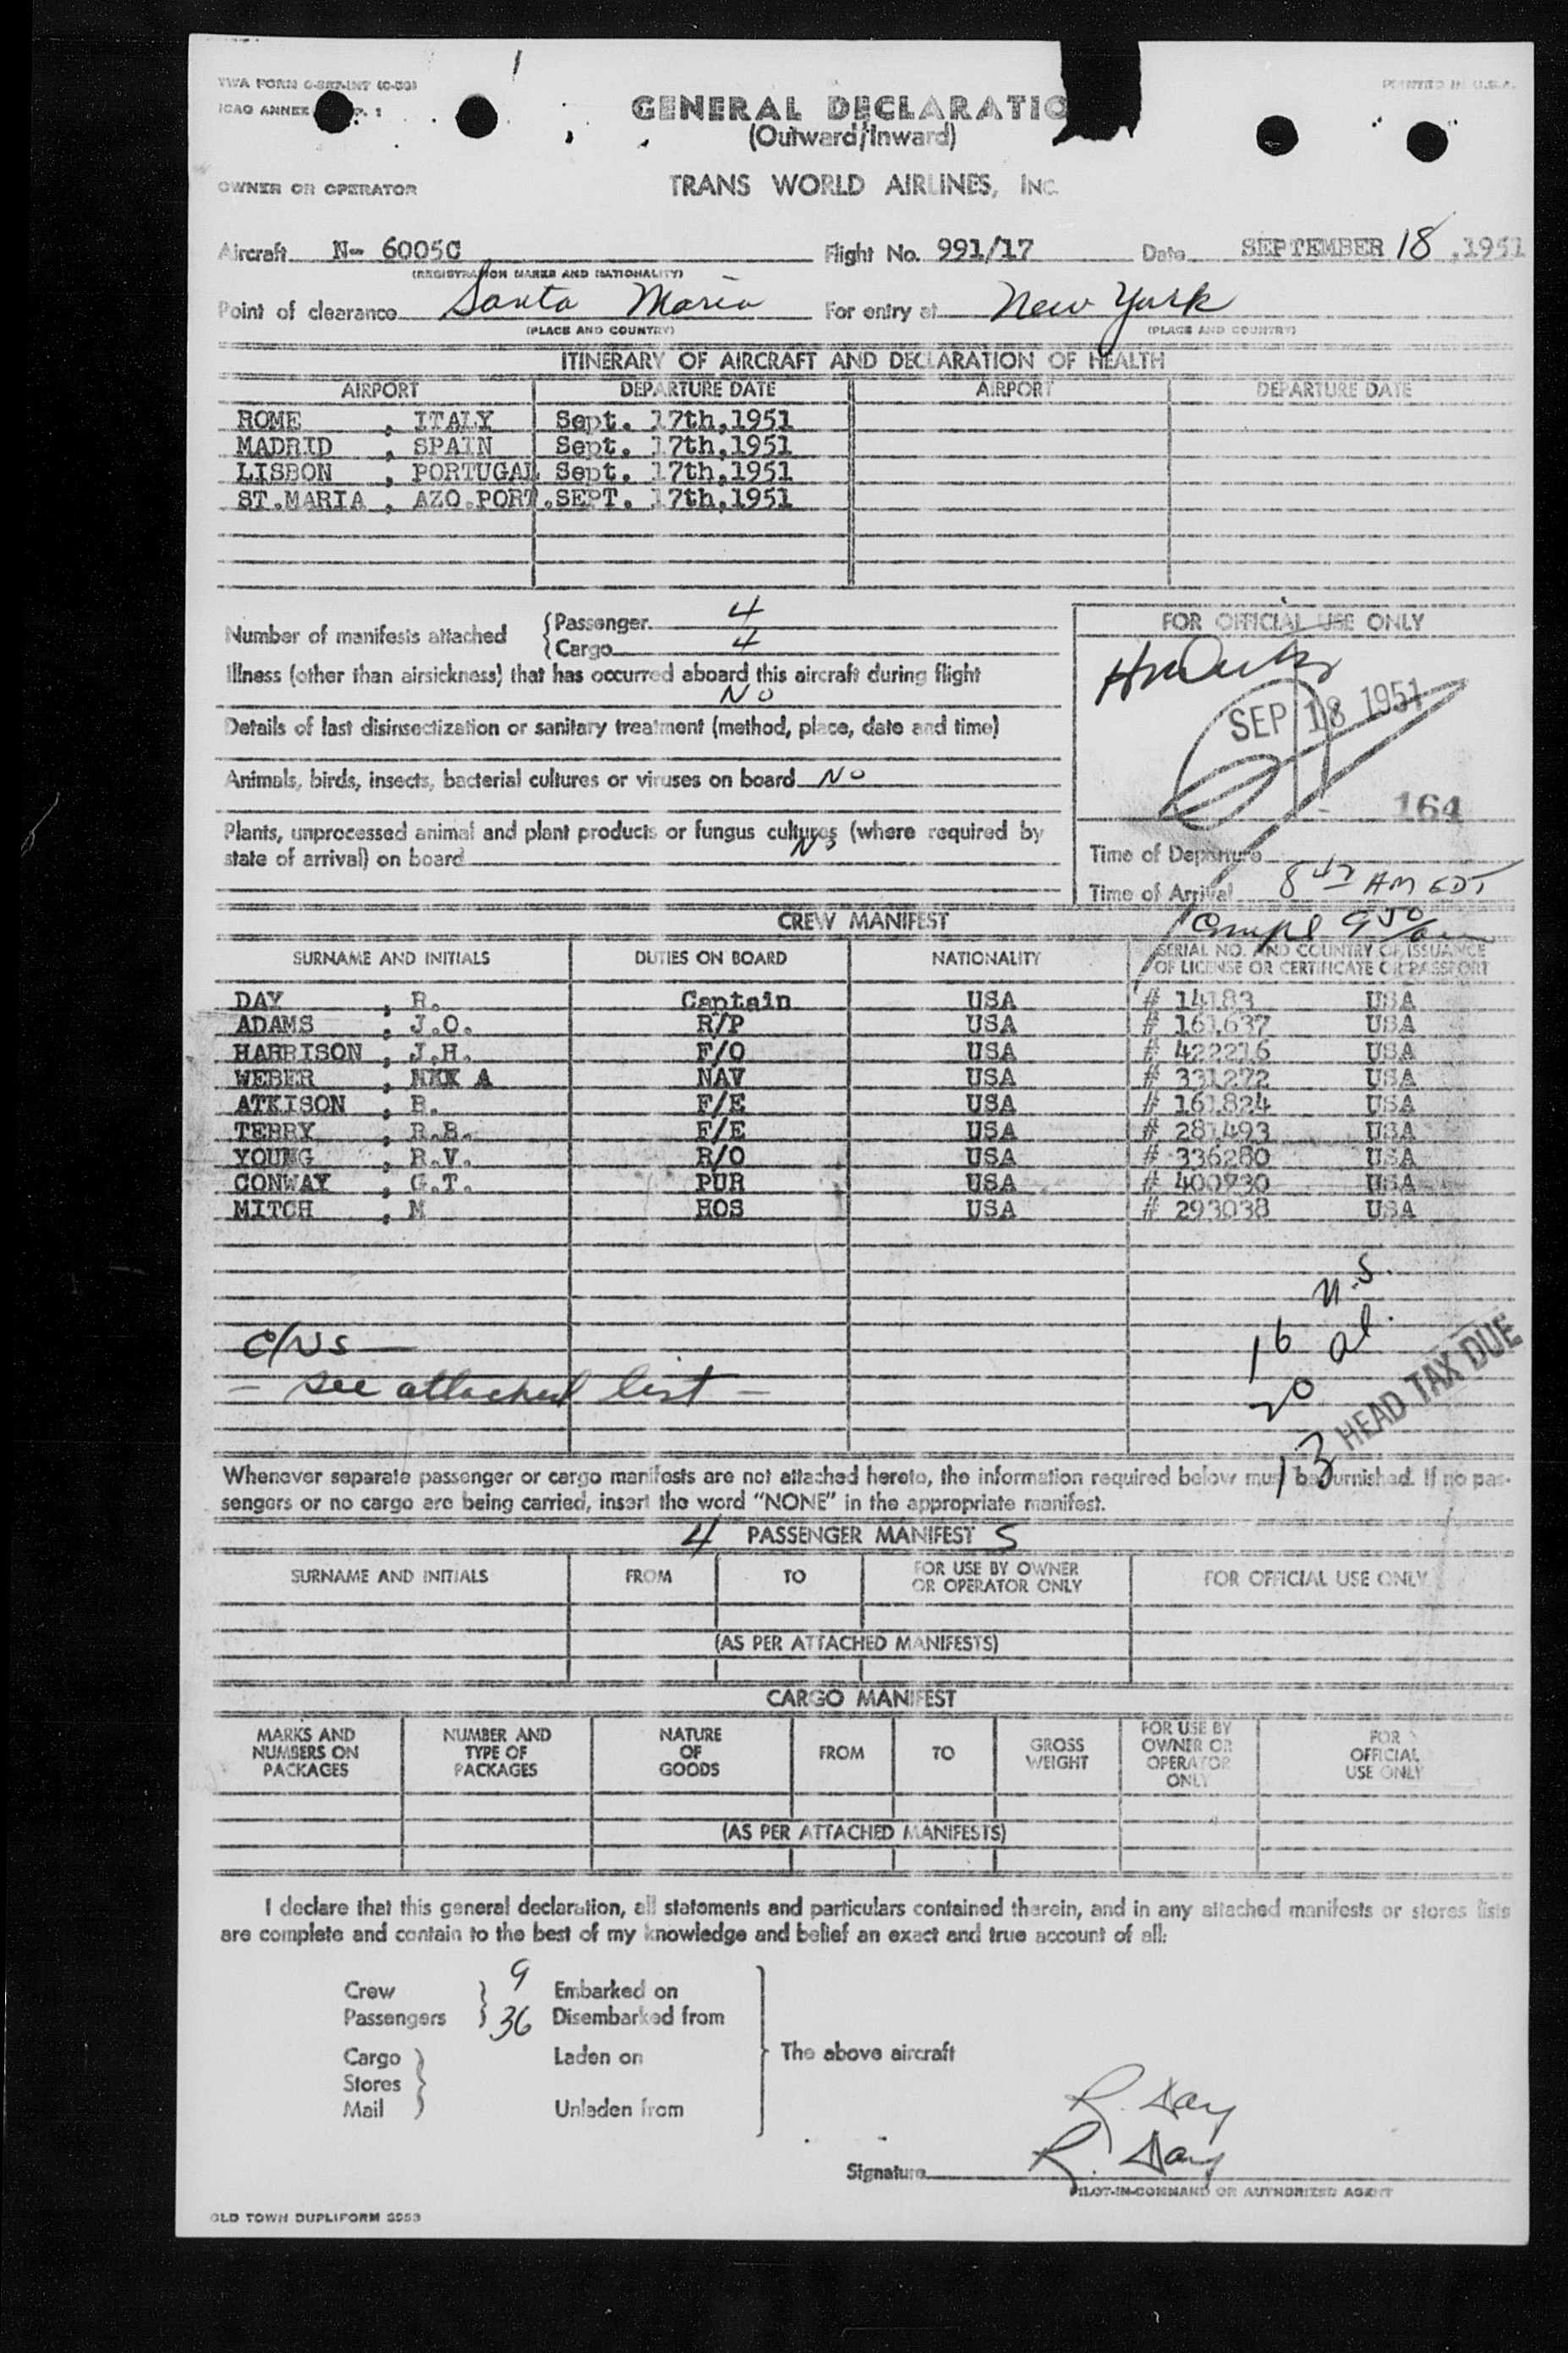 TWA FORM
ICAO ANNEX P. 1
PRINTED IN U.S.A.
GENERAL DECLARATIO
(Outward/Inward)
OWNER OR OPERATOR TRANS WORLD AIRLINES, INC.
Aircraft N- 6005C Flight No. 991/17 Date SEPTEMBER 18, 1951
(REGISTRATION MARKS AND NATIONALITY)
Point of clearance Santa Maria For entry at New York
(PLACE AND COUNTRY) (PLACE AND COUNTRY)
ITINERARY OF AIRCRAFT AND DECLARATION OF HEALTH
AIRPORT DEPARTURE DATE AIRPORT DEPARTURE DATE
ROME , ITALY Sept. 17th,1951
MADRID , SPAIN Sept. 17th,1951
LISBON , PORTUGAL Sept. 17th,1951
ST.MARIA , AZO.PORT.SEPT. 17th,1951
Number of manifests attached
Passenger 4
Cargo 4
FOR OFFICIAL USE ONLY
Illness (other than airsickness) that has occurred aboard this aircraft during flight
No
SEP 18 1951
Details of last disinsectization or sanitary treatment (method, place, date and time)
Animals, birds, insects, bacterial cultures or viruses on board No
164
Plants, unprocessed animal and plant products or fungus cultures (where required by
state of arrival) on board No
Time of Departure
Time of Arrival 8 47 AM EDT
Compl 9 50
CREW MANIFEST
SURNAME AND INITIALS DUTIES ON BOARD NATIONALITY SERIAL NO. AND COUNTRY OF ISSUANCE
OF LICENSE OR CERTIFICATE OR PASSPORT
DAY , R. Captain USA # 14183 USA
ADAMS , J.O. R/P USA # 161637 USA
HARRISON , J.H. F/O USA # 422216 USA
WEBER , A NAV USA # 331272 USA
ATKISON , R. F/E USA # 161824 USA
TERRY , R.B. F/E USA # 281493 USA
YOUNG , R.V. R/O USA # 336280 USA
CONWAY , G.T. PUR USA # 400730 USA
MITCH , M HOS USA # 293038 USA
C/NS
- see attached list -
16 U.S.
20 al.
13 HEAD TAX DUE
Whenever separate passenger or cargo manifests are not attached hereto, the information required below must be furnished. If no pas-
sengers or no cargo are being carried, insert the word "NONE" in the appropriate manifest.
4 PASSENGER MANIFEST S
SURNAME AND INITIALS FROM TO FOR USE BY OWNER
OR OPERATOR ONLY FOR OFFICIAL USE ONLY
(AS PER ATTACHED MANIFESTS)
CARGO MANIFEST
MARKS AND
NUMBERS ON
PACKAGES
NUMBER AND
TYPE OF
PACKAGES
NATURE
OF
GOODS
FROM
TO
GROSS
WEIGHT
FOR USE BY
OWNER OR
OPERATOR
ONLY
FOR
OFFICIAL
USE ONLY
(AS PER ATTACHED MANIFESTS)
I declare that this general declaration, all statements and particulars contained therein, and in any attached manifests or stores lists
are complete and contain to the best of my knowledge and belief an exact and true account of all:
Crew 9 Embarked on
Passengers 36 Disembarked from
Cargo Laden on
Stores
Mail Unladen from
The above aircraft
R. Day
Signature R. Day
PILOT-IN-COMMAND OR AUTHORIZED AGENT
OLD TOWN DUPLIFORM